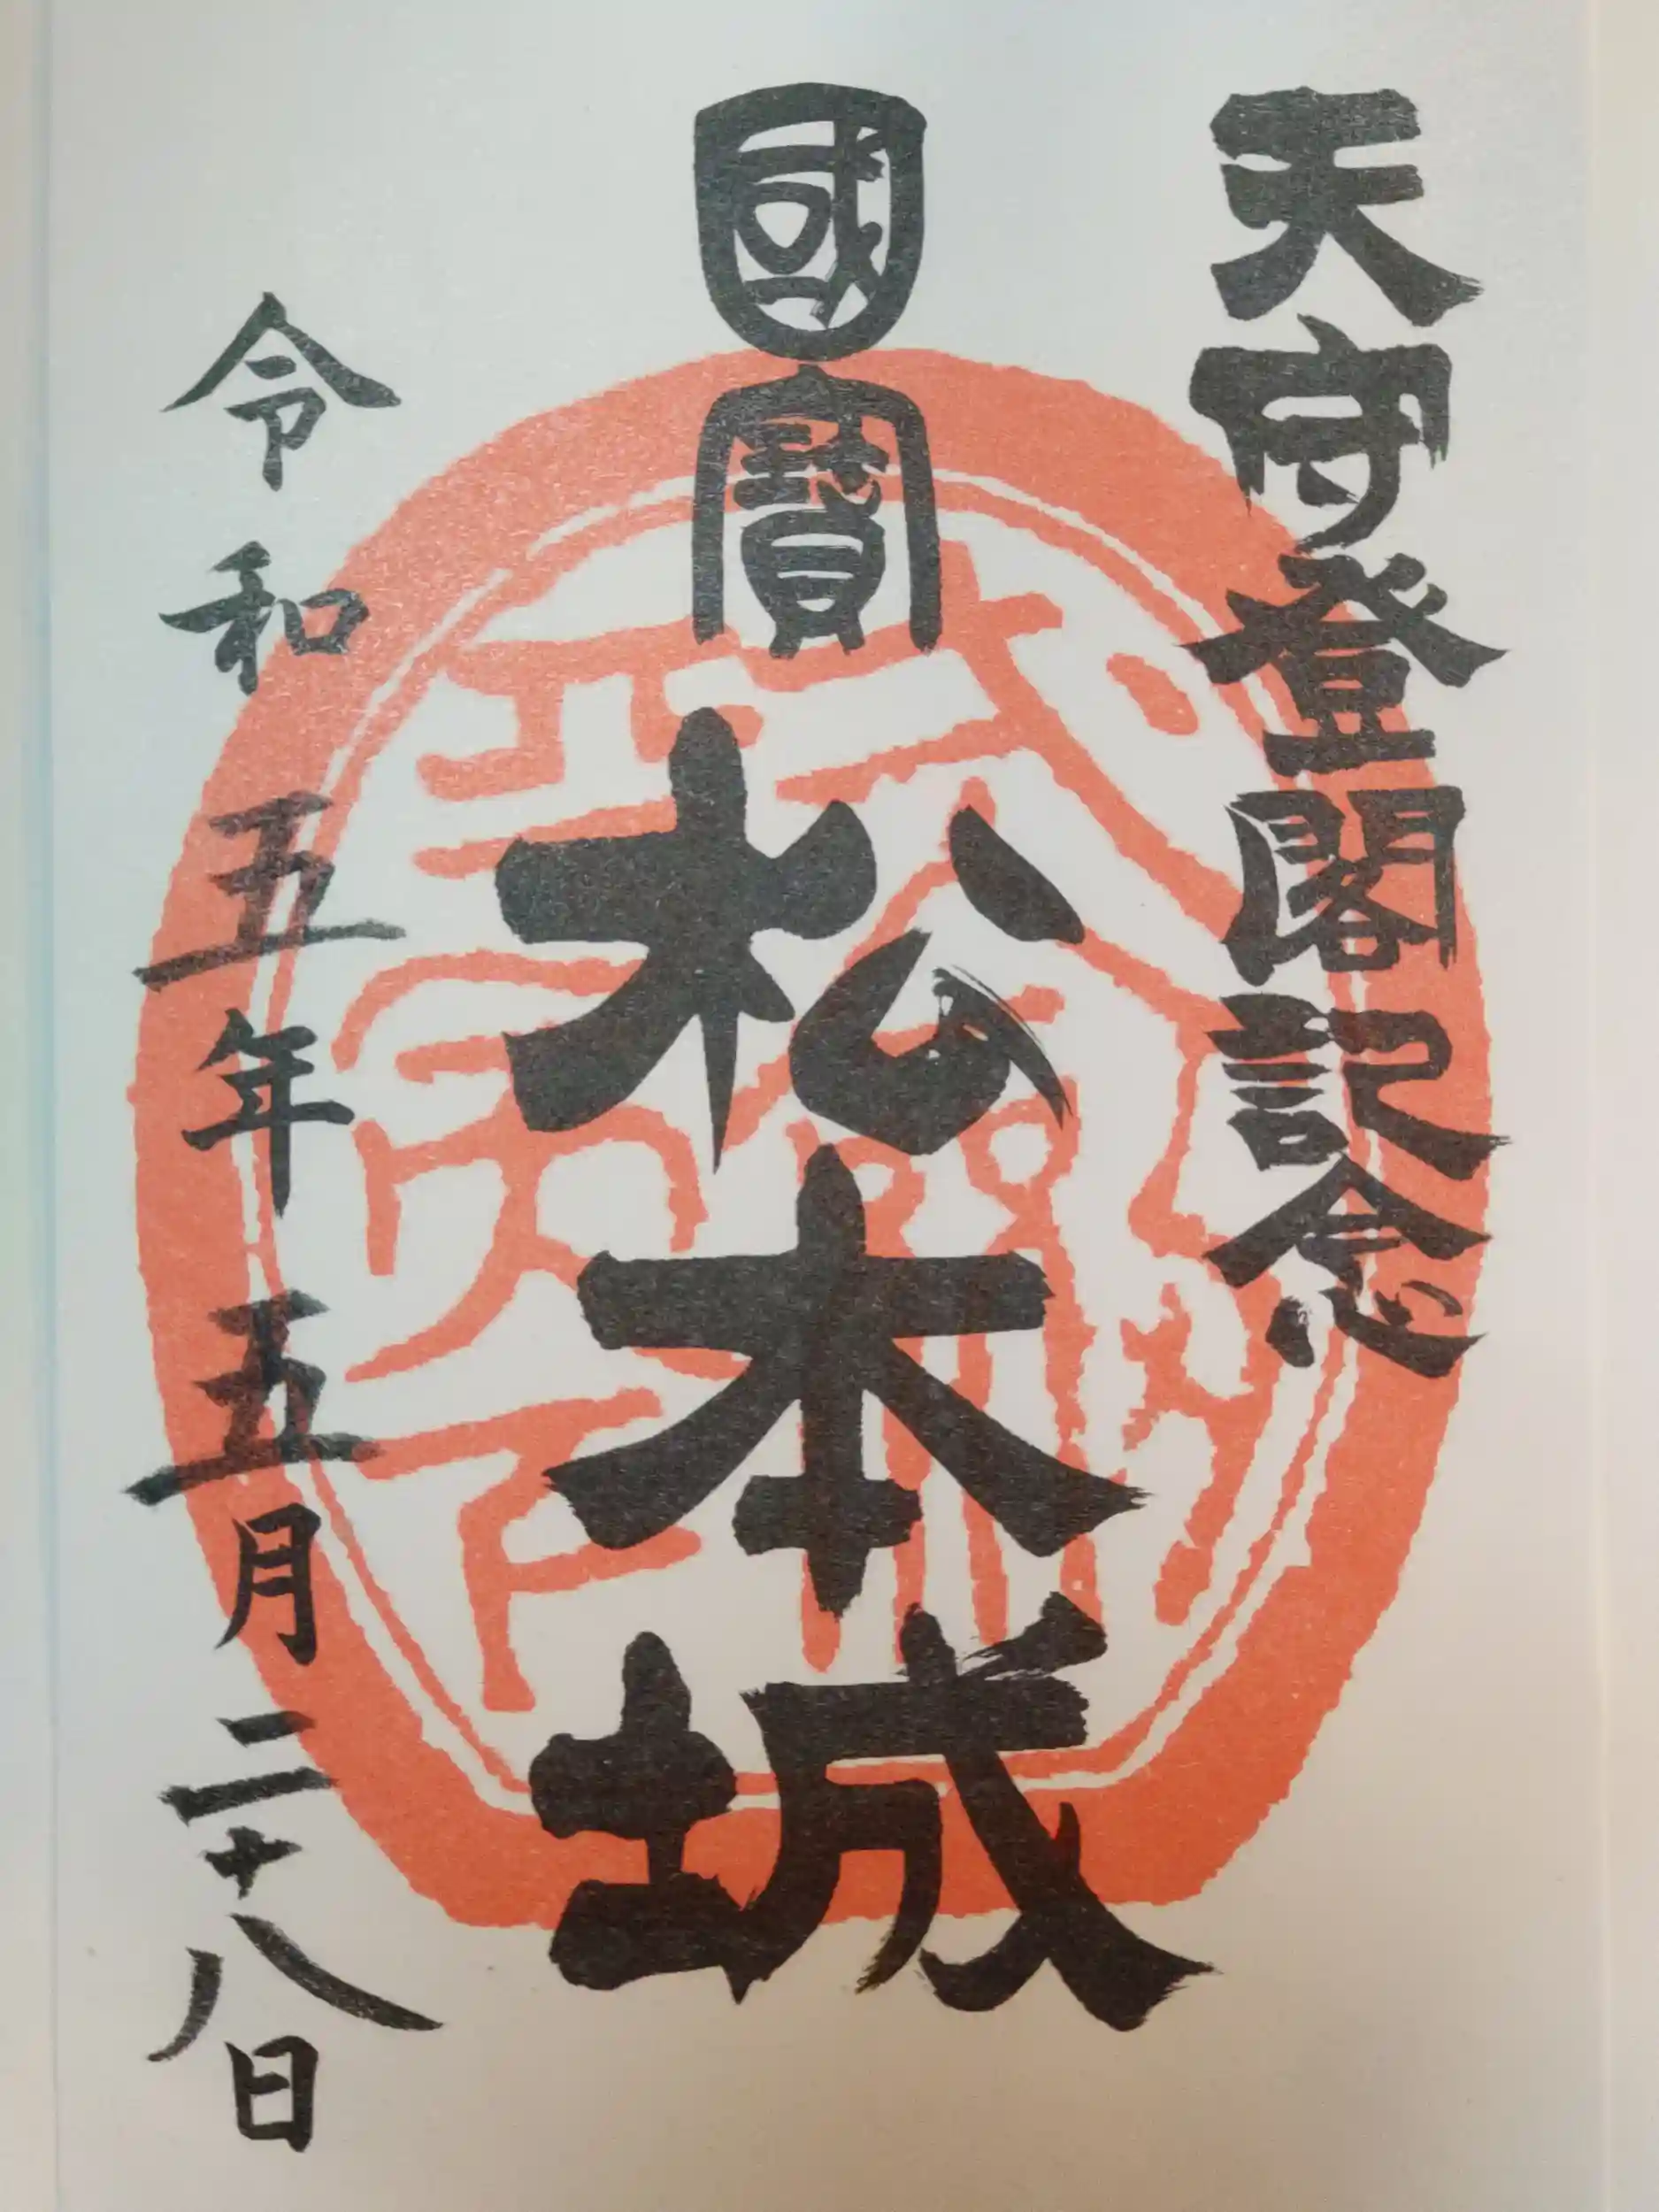 天守登閣記念
國寶 松本城
令和 五年 五月 二十八日